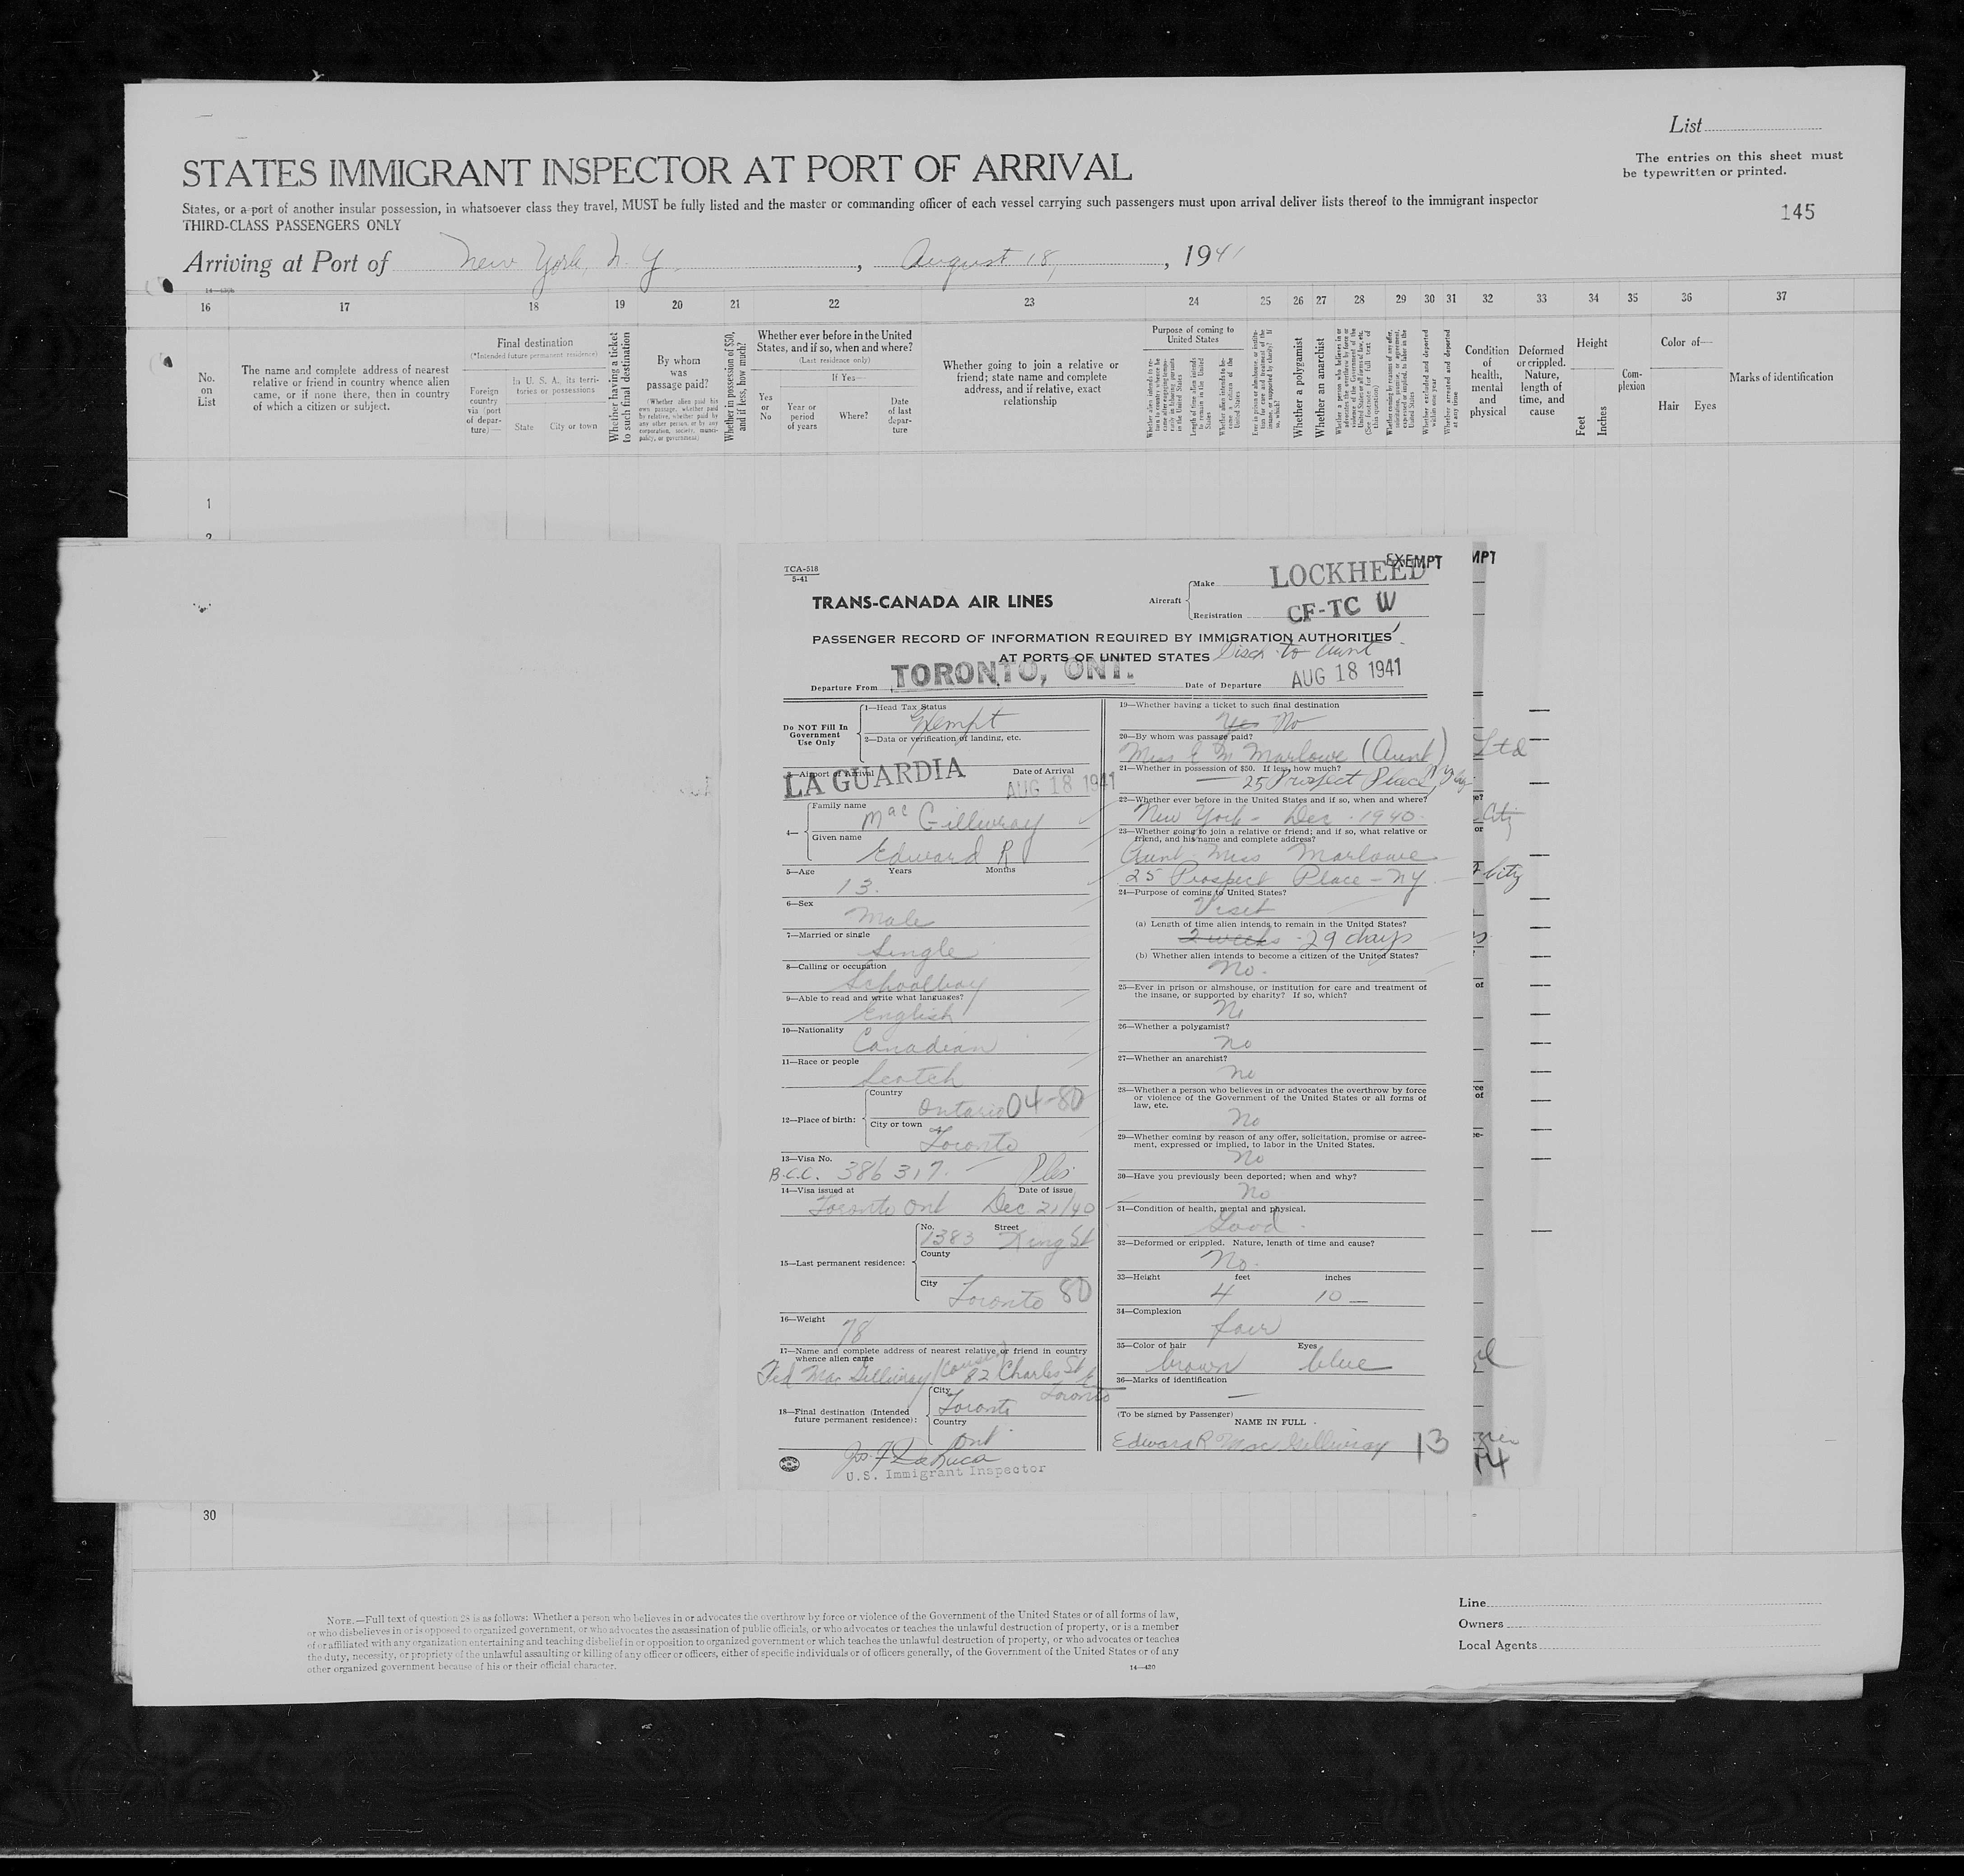 List
The entries on this sheet must
be typewritten or printed.
STATES IMMIGRANT INSPECTOR AT PORT OF ARRIVAL
States, or a port of another insular possession, in whatsoever class they travel, MUST be fully listed and the master or commanding officer of each vessel carrying such passengers must upon arrival deliver lists thereof to the immigrant inspector
THIRD-CLASS PASSENGERS ONLY
145
Arriving at Port of New York, N. Y. , August 18, , 1941
16 17 18 19 20 21 22 23 24 25 26 27 28 29 30 31 32 33 34 35 36 37
No.
on
List
The name and complete address of nearest
relative or friend in country whence alien
came, or if none there, then in country
of which a citizen or subject.
Final destination
(*Intended future permanent residence)
Foreign
country
via (port
of depar-
ture)—
In U. S. A., its terri-
tories or possessions
State
City or town
Whether having a ticket
to such final destination
By whom
was
passage paid?
(Whether alien paid his
own passage, whether paid
by relative, whether paid by
any other person, or by any
corporation, society, munici-
pality, or government)
Whether in possession of $50,
and if less, how much?
Whether ever before in the United
States, and if so, when and where?
(Last residence only)
Yes
or
No
If Yes—
Year or
period
of years
Where?
Date
of last
depar-
ture
Whether going to join a relative or
friend; state name and complete
address, and if relative, exact
relationship
Purpose of coming to
United States
Whether a polygamist
Whether an anarchist
Whether excluded and deported
within one year
Whether arrested and deported
at any time
Condition
of
health,
mental
and
physical
Deformed
or crippled.
Nature,
length of
time, and
cause
Height
Feet
Inches
Com-
plexion
Color of—
Hair
Eyes
Marks of identification
1
2
TCA-518
5-41
TRANS-CANADA AIR LINES
Aircraft
Make LOCKHEED
EXEMPT
Registration CF-TC W
PASSENGER RECORD OF INFORMATION REQUIRED BY IMMIGRATION AUTHORITIES
AT PORTS OF UNITED STATES Disch to aunt
Departure From TORONTO, ONT.
Date of Departure AUG 18 1941
Do NOT Fill In
Government
Use Only
1—Head Tax Status
Exempt
2—Data or verification of landing, etc.
3—Airport of Arrival
LA GUARDIA
Date of Arrival
AUG 18 1941
4—
Family name
Mac Gillivray
Given name
Edward R
5—Age Years Months
13.
6—Sex
Male
7—Married or single
Single
8—Calling or occupation
Schoolboy
9—Able to read and write what languages?
English
10—Nationality
Canadian
11—Race or people
Scotch
12—Place of birth:
Country
Ontario 04-80
City or town
Toronto
13—Visa No.
B.C.C. 386317.
14—Visa issued at Date of issue
Toronto Ont Dec. 21/40
15—Last permanent residence:
No. Street
1383 King St
County
City
Toronto 80
16—Weight
78
17—Name and complete address of nearest relative or friend in country
whence alien came
Mac Gillivray (cousin) 82 Charles St
Toronto
18—Final destination (Intended
future permanent residence):
City
Toronto
Country
Ont
U.S. Immigrant Inspector
19—Whether having a ticket to such final destination
Yes No
20—By whom was passage paid?
Miss E M Marlowe (Aunt)
21—Whether in possession of $50. If less, how much?
25 Prospect Place
22—Whether ever before in the United States and if so, when and where?
New York - Dec. 1940.
23—Whether going to join a relative or friend; and if so, what relative or
friend, and his name and complete address?
Aunt Miss Marlowe
25 Prospect Place - NY
24—Purpose of coming to United States?
Visit
(a) Length of time alien intends to remain in the United States?
2 weeks 29 days
(b) Whether alien intends to become a citizen of the United States?
No.
25—Ever in prison or almshouse, or institution for care and treatment of
the insane, or supported by charity? If so, which?
No
26—Whether a polygamist?
no
27—Whether an anarchist?
no
28—Whether a person who believes in or advocates the overthrow by force
or violence of the Government of the United States or all forms of
law, etc.
No
29—Whether coming by reason of any offer, solicitation, promise or agree-
ment, expressed or implied, to labor in the United States.
No
30—Have you previously been deported; when and why?
No
31—Condition of health, mental and physical.
Good.
32—Deformed or crippled. Nature, length of time and cause?
No.
33—Height feet inches
4 10
34—Complexion
fair
35—Color of hair Eyes
brown blue
36—Marks of identification
—
(To be signed by Passenger)
NAME IN FULL
Edward R Mac Gillivray 13
MPT
Ltd
City
City
14
30
NOTE.—Full text of question 28 is as follows: Whether a person who believes in or advocates the overthrow by force or violence of the Government of the United States or of all forms of law,
or who disbelieves in or is opposed to organized government, or who advocates the assassination of public officials, or who advocates or teaches the unlawful destruction of property, or is a member
of or affiliated with any organization entertaining and teaching disbelief in or opposition to organized government or which teaches the unlawful destruction of property, or who advocates or teaches
the duty, necessity, or propriety of the unlawful assaulting or killing of any officer or officers, either of specific individuals or of officers generally, of the Government of the United States or of any
other organized government because of his or their official character.
14—430
Line
Owners
Local Agents